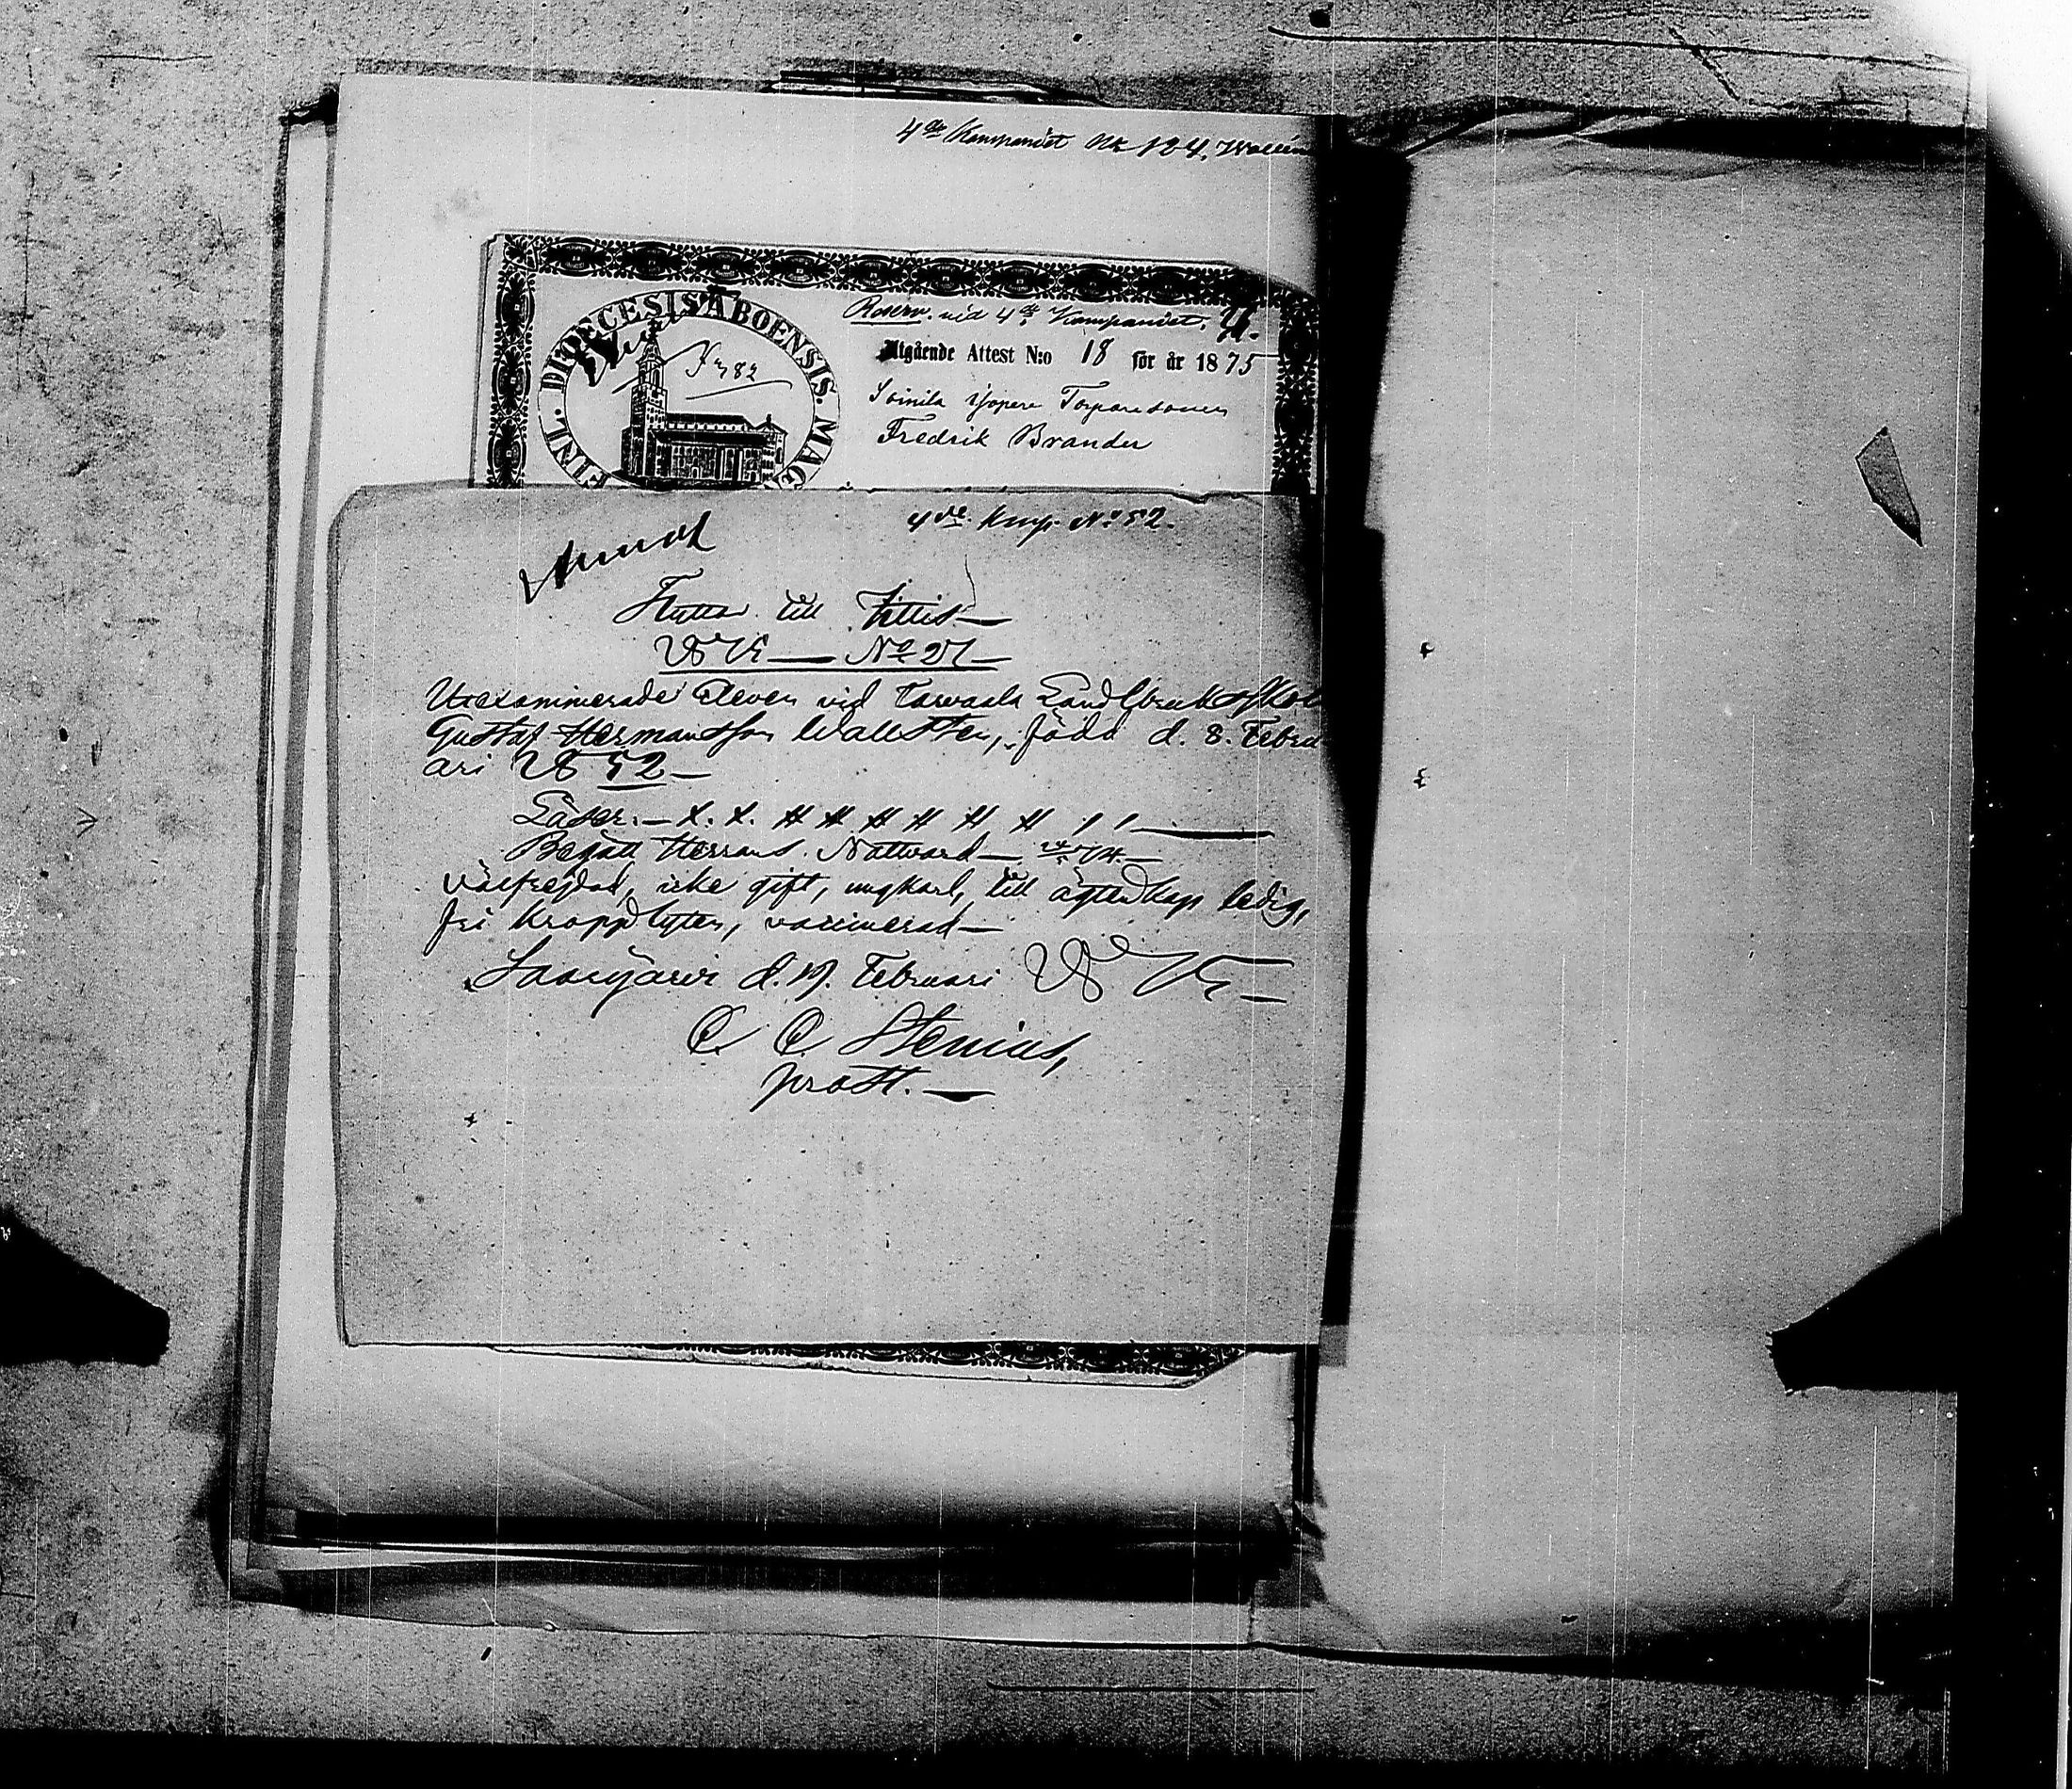 4de Kompaniet No 124. Wallén
FINL. DIOECESIS ÅBOENSIS. MAG
Reserv. vid 4de Kompaniet.
Utgående Attest N:o 18 för år 1875
Soinila Torparesonen
Fredrik Brander
4de Komp. No 52.
Flyttar till Jittis
1875 No 21
Utexaminerade Eleven vid Tarvaala Landtbruksskol
Gustaf Hermansson Wallsten, född d. 8. Febru
ari 1852
Läser.
Begått Herrans Nattvard
välfrejdad, icke gift, ungkarl, till ägtenskap ledig,
fri kroppslyten, vaccinerad
Saarijärvi d. 19. Februari 1875
C. C. Stenius,
prost.